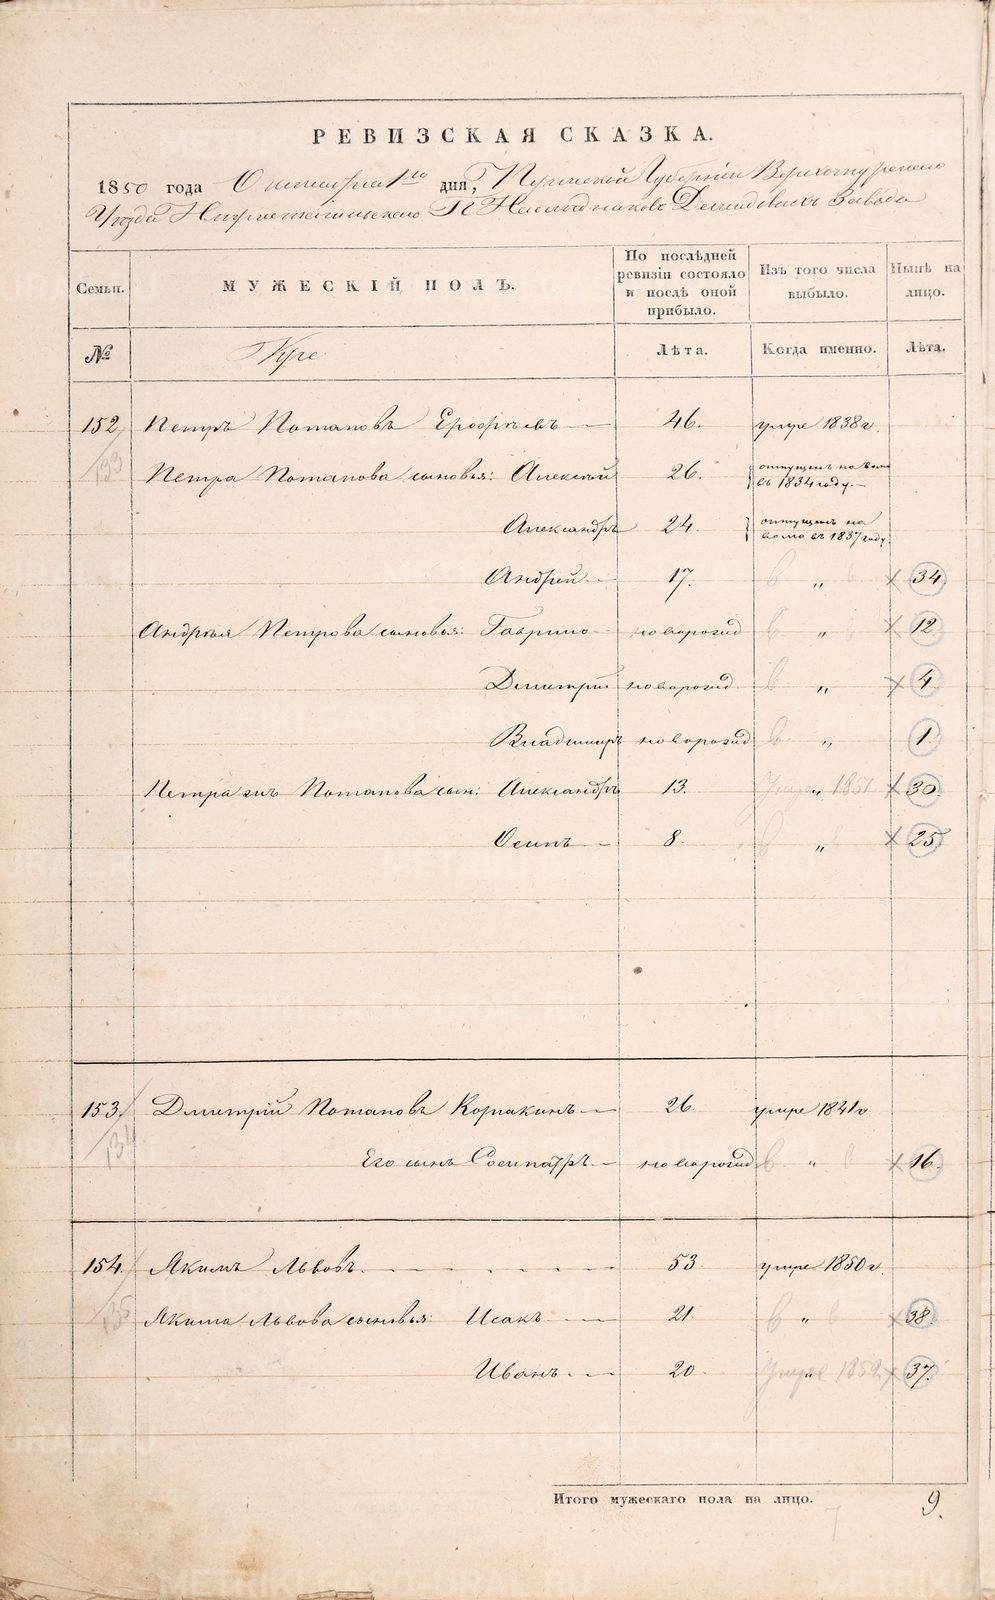 РЕВИЗСКАЯ СКАЗКА.
1850 года Октября 1го дня, Пермской Губерніи Верхотурскаго
Уезда Нижнетагильскаго Гг. Наследниковъ Демидовыхъ Завода
Семьи.
МУЖЕСКІЙ ПОЛЪ.
По послѣдней ревизіи состояло и послѣ оной прибыло.
Изъ того числа выбыло.
Нынѣ на лицо.
№
Лѣта.
Когда именно.
Лѣта.
152 Петръ Потаповъ Ерофѣевъ 46. умре 1838 г.
133
Петра Потапова сыновья: Алексѣй 26. отпущенъ на волю въ 1834 году.
Александръ 24. отпущенъ на волю въ 1837 году.
Андрей 17. „ 34
Андрея Петрова сыновья: Гаврило новорожд „ 12
Дмитрій новорожд „ 4
Владимиръ новорожд „ 1.
Петра жъ Потапова сын: Александръ 13. Умре „ 1851 30
Осипъ 8. „ 25
153. Дмитрій Потаповъ Корякинъ 26. умре 1841 г
134
Его сынъ Сосипатръ новорожд „ 16.
154. Якимъ Львовъ. 53 умре 1850 г.
135
Якима Львова сыновья: Исакъ 21. „ 38.
Иванъ 20 Умре 1852 37.
Итого мужескаго пола на лицо. 9.
METRIKI.GASO-URAL.RU